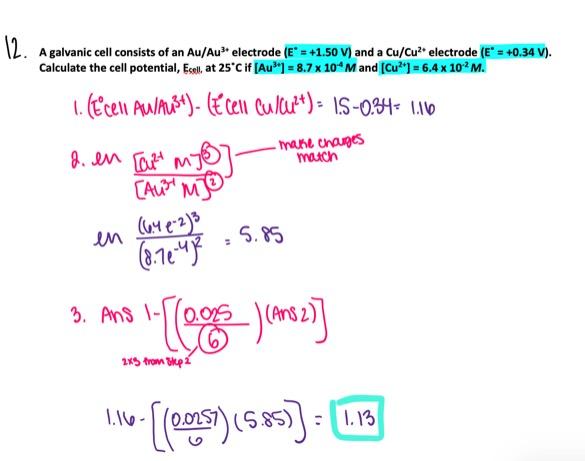 12. A galvanic cell consists of an Au/Au³⁺ electrode (E° = +1.50 V) and a Cu/Cu²⁺ electrode (E° = +0.34 V).
Calculate the cell potential, Ecell, at 25°C if [Au³⁺] = 8.7 x 10⁻⁴ M and [Cu²⁺] = 6.4 x 10⁻² M.
1. (E°cell Au/Au³⁺) - (E°cell Cu/Cu²⁺) = 1.5-0.34= 1.16
2. en [Cu²⁺ M]③
make charges
match
[Au³⁺ M]②
en (6.4 e-2)³
(8.7e-4)² = 5.85
3. Ans 1-[(0.025
6)(Ans 2)]
2x3 from Step 2
1.16-[(0.0257
6)(5.85)] = 1.13